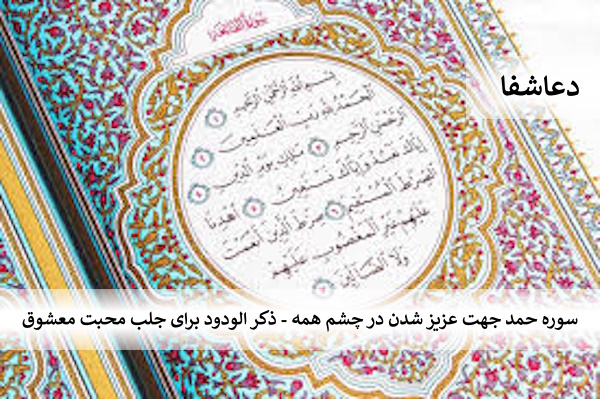 دعاشفا
بسم الله الرحمن الرحيم
الحمد لله رب العلمين
الرحمن الرحيم ملك يوم الدين
إياك نعبد وإياك نستعين اهدنا
الصرط المستقيم صرط الذين أنعمت
عليهم غير المغضوب عليهم
ولا الضالين
سوره حمد جهت عزیز شدن در چشم همه - ذکر الودود برای جلب محبت معشوق